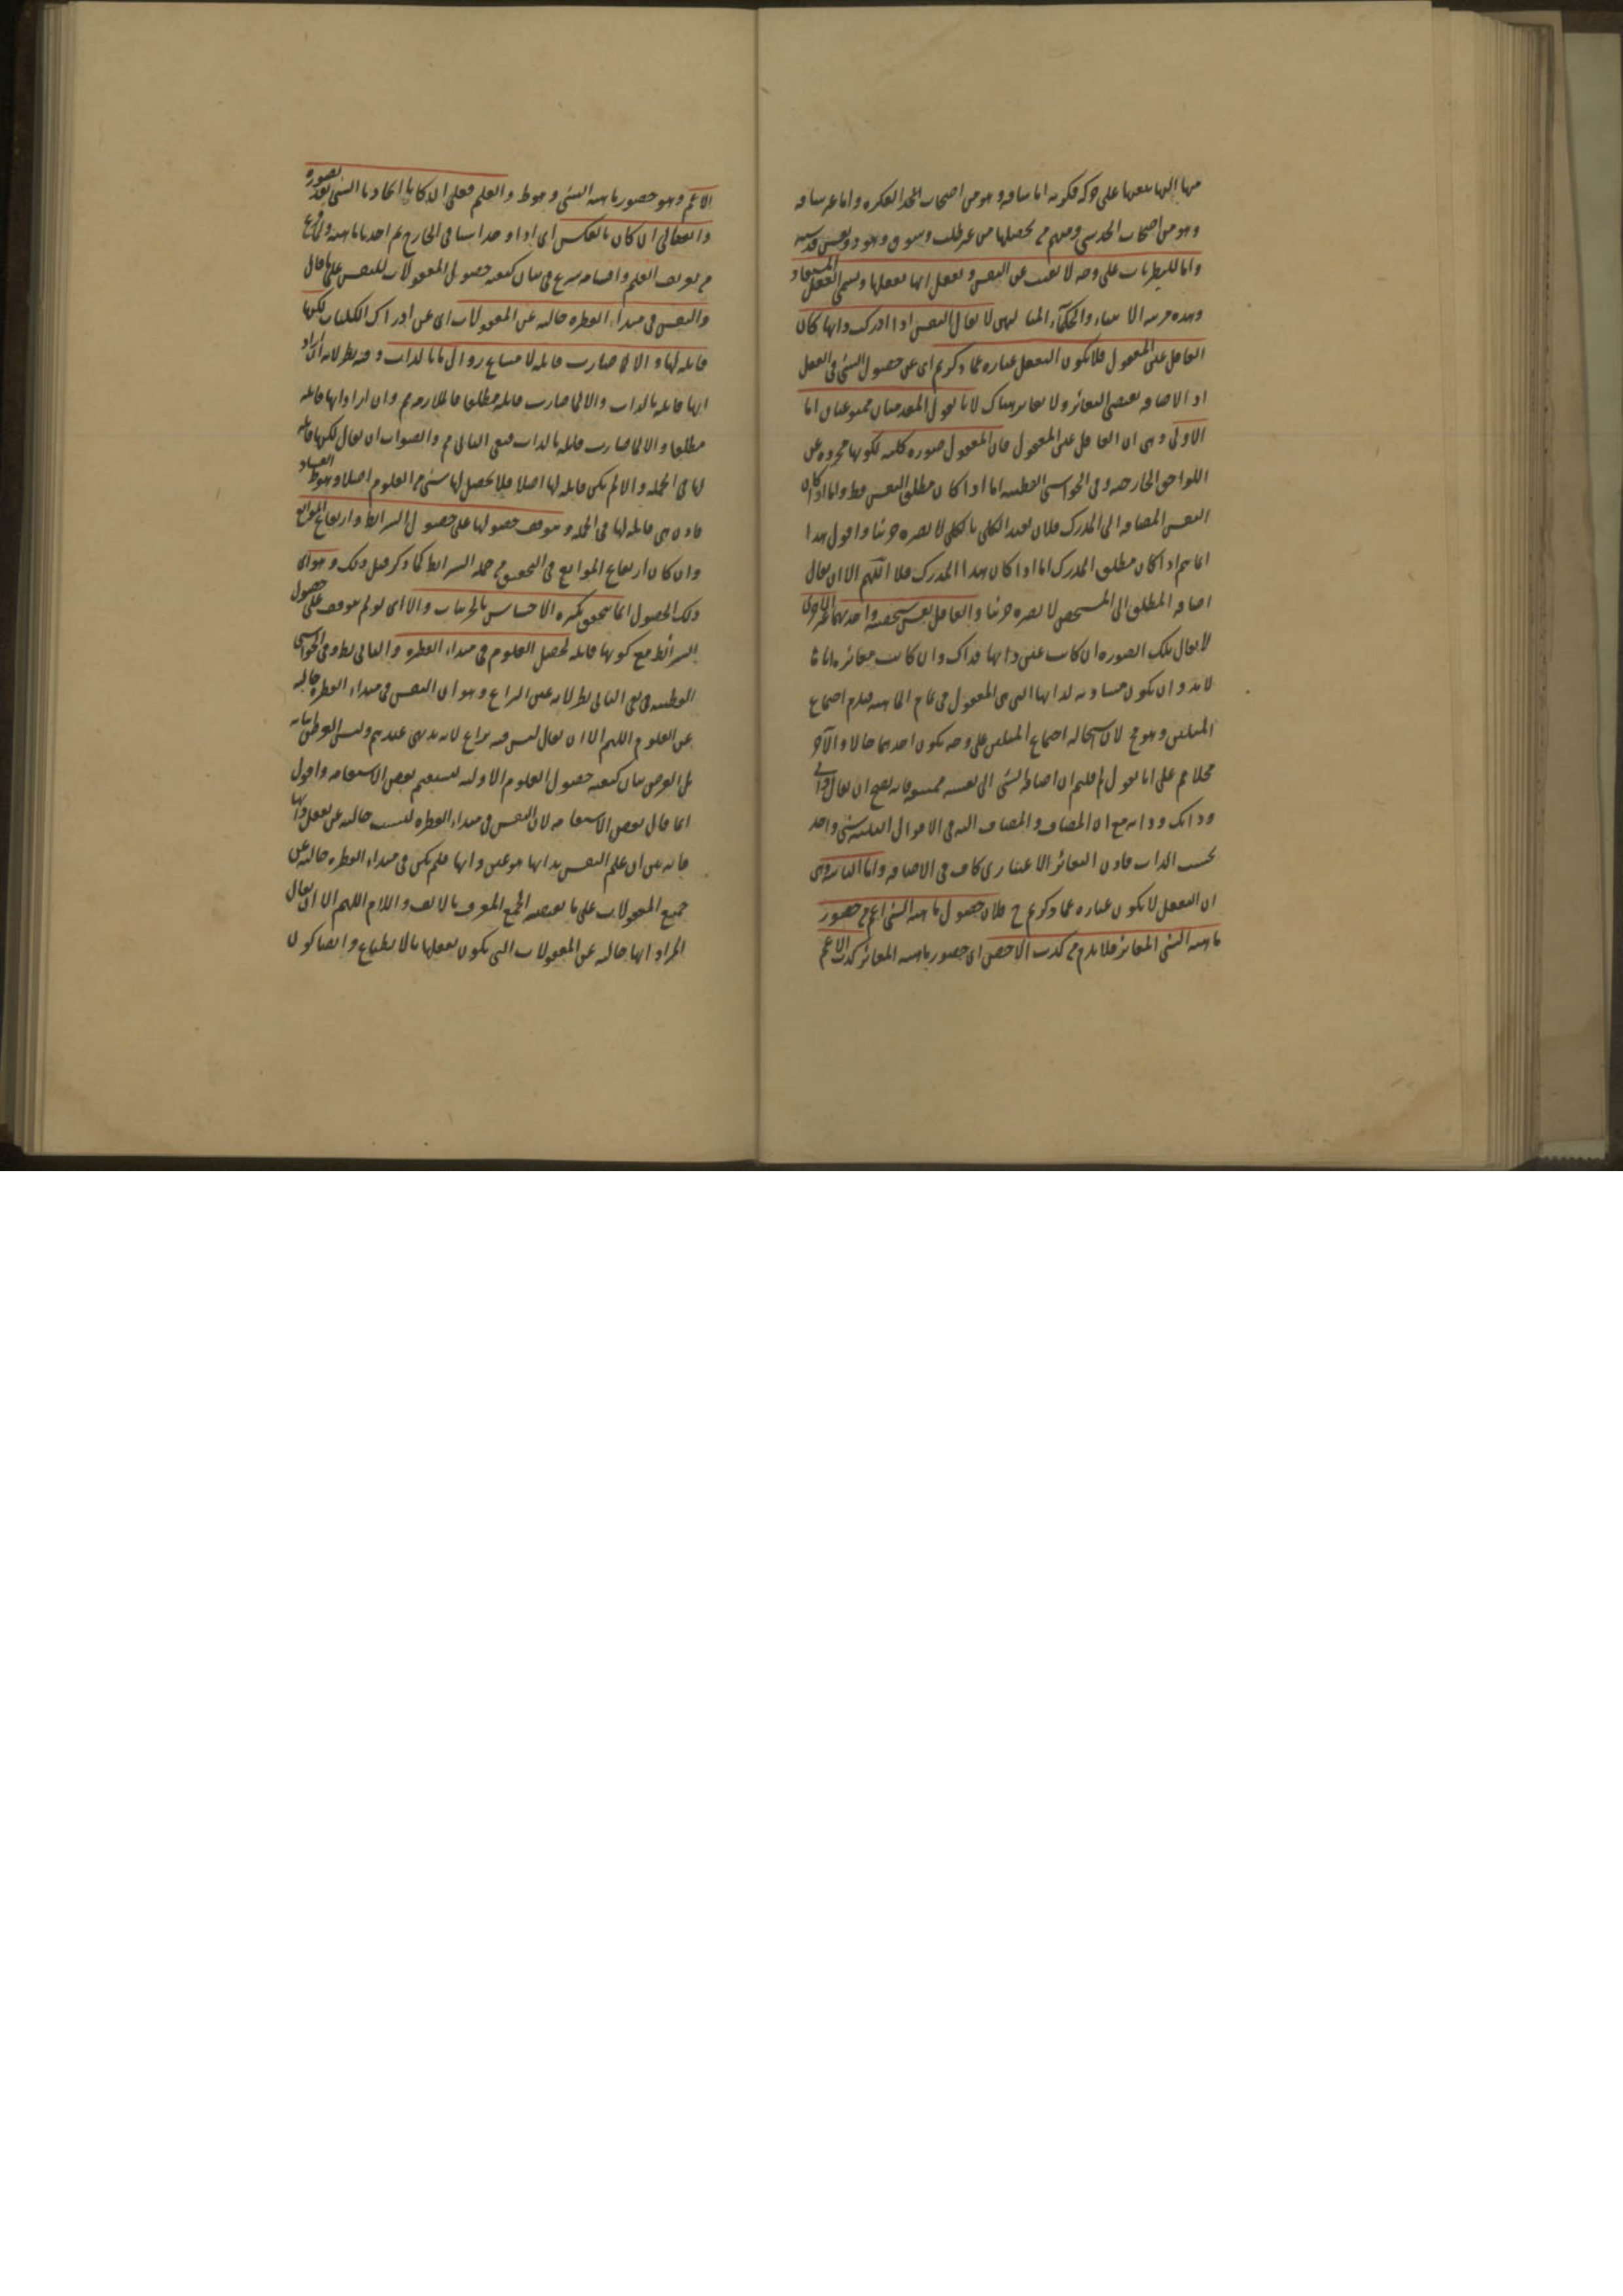 منها إليها تنقلها على حركة فكرية اما شاقة وهو من اصحاب الفكرة واما غير شاقة
وهو من اصحاب الحدس ومنهم من يحصلها من غير طلب وشوق وهو ذو نفس قدسية
واما للنظريات على وجه لا تغيب عن النفس وتعقل انها تعقلها ويسمى العقل المستفاد
وهذه مرتبة الانبياء والحكماء المتألهين لا يقال النفس اذا ادركت ذاتها كان
العاقل عين المعقول فلا يكون التعقل عبارة عما ذكرتم اى عن حصول الشئ فى العقل
اذ الاضافة تقتضى التغائر ولا تغاير هناك لانا نقول المقدمتان ممنوعتان اما
الاولى وهى ان العاقل عين المعقول فان المعقول صورة كلية لكونها مجردة عن
اللواحق الخارجية وفى الحواشى القطبية اما اذا كان مطلق النفس فظ واما اذا كان
النفس المضافة الى المدرك فلان تقيد الكلى بالكلى لا يصيره جزئيا واقول هذا
انما يتم اذا كان مطلق المدرك اما اذا كان هذا المدرك فلا اللهم الا ان يقال
اضافة المطلق الى المشخص لا يصيره جزئيا والعاقل نفس شخصية واحديهما غير الاخرى
لا يقال تلك الصورة ان كانت عين ذاتها فذاك وان كانت مغائرة اياها
لابد وان يكون مساوية لذاتها التى هى المعقول فى تمام الماهية فيلزم اجتماع
المثلين وهو مح لان استحالة اجتماع المثلين على وجه يكون احدهما حالا والآخر
محلا مم على انا نقول لم قلتم ان اضافة الشئ الى نفسه ممتنعة فانه يصح ان يقال ذاتى
وذاتك وذاته مع ان المضاف والمضاف اليه فى الاقوال الثلثة شئ واحد
بحسب الذات فاذن التغائر الاعتبارى كاف فى الاضافة واما الثانية وهى
ان التعقل لا يكون عبارة عما ذكرتم ح فلان حصول ماهية الشئ اعم من حضور
ماهية الشئ المغائر فلا يلزم من كذب الاخص اى حضور ماهية المغائر كذب الاعم
الاعم وهو حضور ماهية الشئ وهو ظ والعلم فعلى ان كان اتحاد ما الشئ بعد تصوره
وانفعالى ان كان بالعكس اى اذا وجد اشيا فى الخارج ثم اخذنا ماهيته ولما فرغ
من تعريف العلم واقسامه شرع فى بيان كيفية حصول المعقولات للنفس على ما قال
والنفس فى مبداء الفطرة خالية عن المعقولات اى عن ادراك الكليات لكنها
قابلة لها والا لما صارت قابلة لامتناع زوال ما بالذات وفيه نظر لانه ان اراد
انها قابلة بالذات والا لما صارت قابلة مطلقا فالملازمة مم وان اراد انها قابلة
مطلقا والا لما صارت قابلة بالذات فنفى التالى مم والصواب ان يقال لكنها قابلة
لها فى الجملة والا لم يكن قابلة لها اصلا فلا يحصل لها شئ من العلوم اصلا وهو ظ الفساد
فاذن هى قابلة لها فى الجملة وتتوقف حصولها على حصول الشرائط وارتفاع الموانع
وان كان ارتفاع الموانع فى التحقيق من جملة الشرائط كما ذكر قبل وذلك وهو اى
ذلك الحصول انما يتحقق بكثرة الاحساس بالجزئيات والا اى لو لم يتوقف على حصول
الشرائط مع كونها قابلة لحصل العلوم فى مبداء الفطرة والتالى بط وفى الحواشى
القطبية فى نفى التالى نظر لانه عين النزاع وهو ان النفس فى مبداء الفطرة خالية
عن العلوم اللهم الا ان يقال ليس فيه نزاع لانه بديهى عندهم وليس الغرض بيانه
بل الغرض بيان كيفية حصول العلوم الاولية ليستقيم بعض الاستقامة واقول
انما قال بعض الاستقامة لان النفس فى مبداء الفطرة ليست خالية عن تعقل ذاتها
فانه بين ان علم النفس بذاتها هو عين ذاتها فلم يكن فى مبداء الفطرة خالية عن
جميع المعقولات على ما يقتضيه الجمع المعرف بالالف واللام اللهم الا ان يقال
المراد انها خالية عن المعقولات التى يكون تعقلها بالانطباع وايضا كون